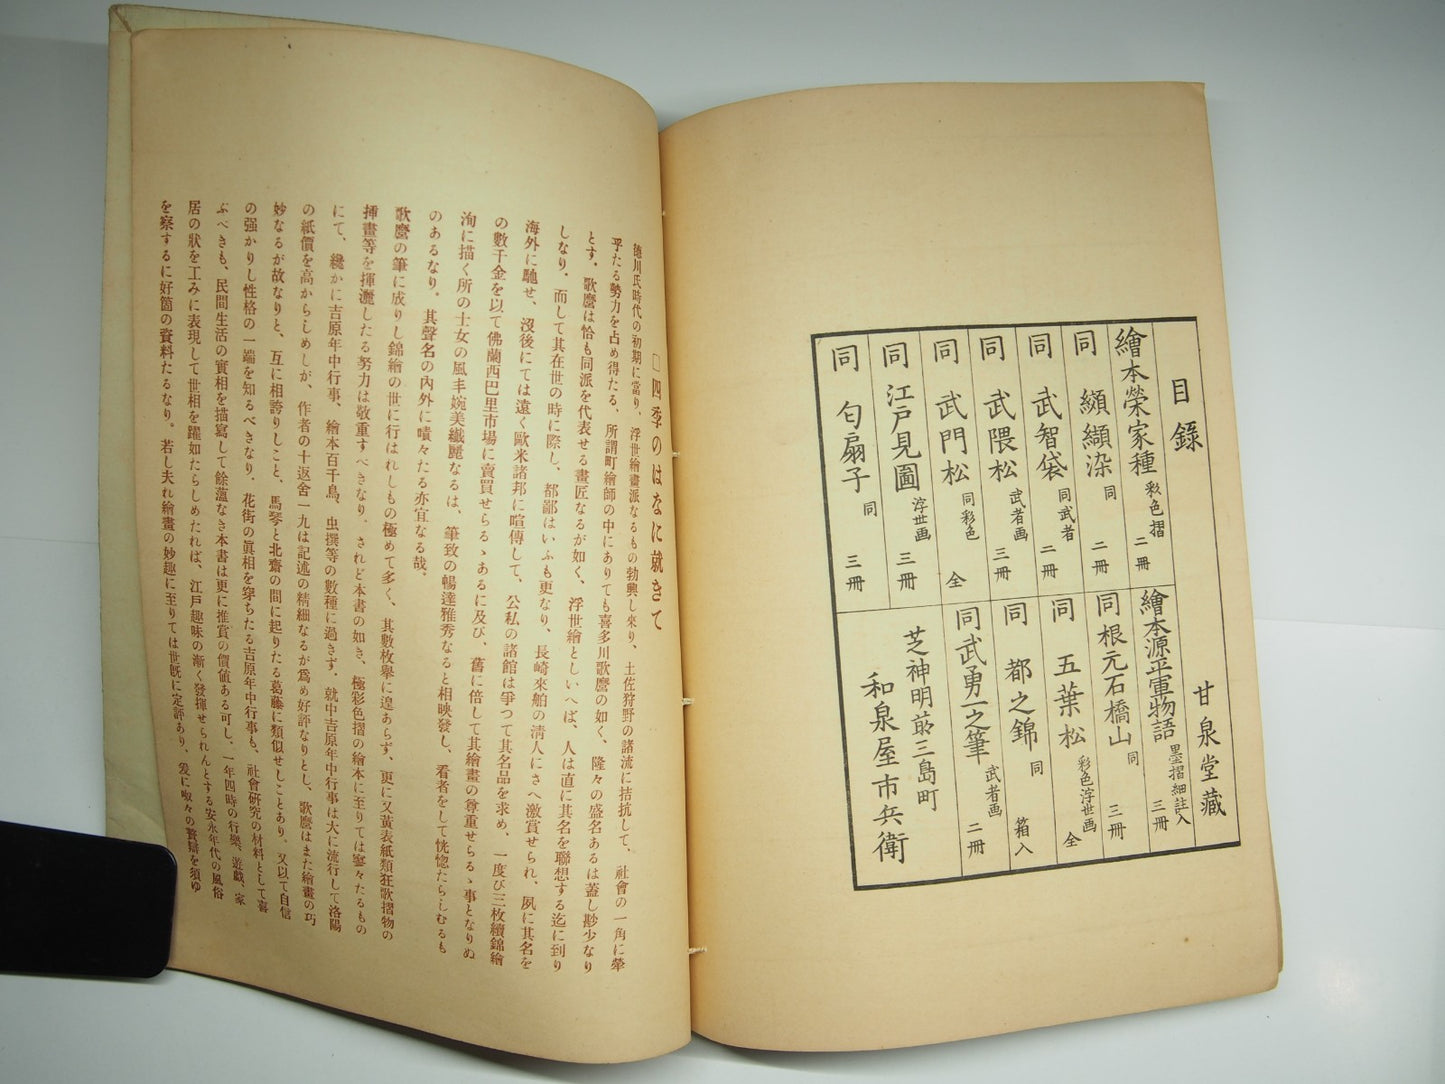 目錄
甘泉堂藏
繪本榮家種 彩色摺 二冊
同 纐纈染 同 二冊
同 武智袋 同武者 二冊
同 武隈松 武者画 三冊
同 武門松 同彩色 全
同 江戸見圖 浮世画 三冊
同 匂扇子 同 三冊
繪本源平軍物語 墨摺細註入 三冊
同 根元石橋山 同 三冊
同 五葉松 彩色浮世画 全
同 都之錦 同 箱入
同 武勇一之筆 武者画 二冊
芝神明前三島町
和泉屋市兵衛
□四季のはなに就きて
德川氏時代の初期に當り、浮世繪畫派なるもの勃興し來り、土佐狩野の諸流に拮抗して、社會の一角に犖
乎たる勢力を占め得たる、所謂町繪師の中にありても喜多川歌麿の如く、隆々の盛名あるは蓋し尠少なり
とす。歌麿は恰も同派を代表せる畫匠なるが如く、浮世繪としいへば、人は直に其名を聯想する迄に到り
しなり。而して其在世の時に際し、都鄙はいふも更なり、長崎來舶の清人にさへ激賞せられ、夙に其名を
海外に馳せ、沒後にては遠く歐米諸邦に喧傳して、公私の諸館は爭つて其名品を求め、一度び三枚續錦繪
の數千金を以て佛蘭西巴里市場に賣買せらるゝあるに及び、舊に倍して其繪畫の尊重せらるゝ事となりぬ
洵に描く所の士女の風丰婉美纖麗なるは、筆致の暢達雅秀なると相映發し、看者をして恍惚たらしむるも
のあるなり。其聲名の內外に嘖々たる亦宜なる哉。
歌麿の筆に成りし錦繪の世に行はれしもの極めて多く、其數枚擧に遑あらず、更に又黃表紙類狂歌摺物の
揷畫等を揮灑したる努力は敬重すべきなり。されど本書の如き、極彩色摺の繪本に至りては寥々たるもの
にて、纔かに吉原年中行事、繪本百千鳥、虫撰等の數種に過ぎず。就中吉原年中行事は大に流行して洛陽
の紙價を高からしめしが、作者の十返舍一九は記述の精細なるが爲め好評なりとし、歌麿はまた繪畫の巧
妙なるが故なりと、互に相誇りしこと、馬琴と北齋の間に起りたる葛藤に類似せしことあり。又以て自信
の强かりし性格の一端を知るべきなり。花街の眞相を穿ちたる吉原年中行事も、社會硏究の材料として喜
ぶべきも、民間生活の實相を描寫して餘蘊なき本書は更に推賞の價値ある可し。一年四時の行樂、遊戯、家
居の狀を工みに表現して世相を躍如たらしめたれば、江戶趣味の漸く發揮せられんとする安永年代の風俗
を察するに好箇の資料たるなり。若し夫れ繪畫の妙趣に至りては世旣に定評あり、爰に呶々の贅辯を須ゆ